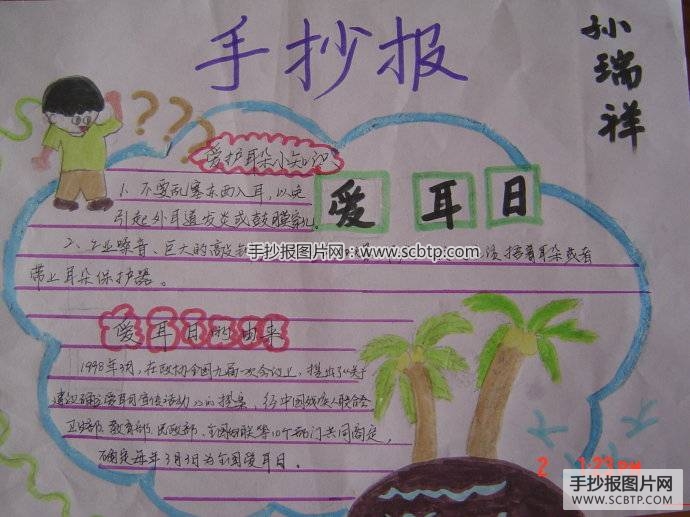 手抄报
孙瑞祥
???
爱护耳朵小知识
1、不要乱塞东西入耳，以免
引起外耳道发炎或鼓膜穿孔。
爱耳日
2、工业噪音、巨大的高
接着耳朵或者
带上耳朵保护器。
手抄报图片网：www.scbtp.com
爱耳日的由来
1998年3月，在政协全国九届一次会议上，提出了《关于
建议确立爱耳日宣传活动》的提案，经中国残疾人联合会
卫生部、教育部、民政部、全国妇联等10个部门共同商定，
确定每年3月3日为全国爱耳日。
2 1:23PM
手抄报图片网
WWW.SCBTP.COM